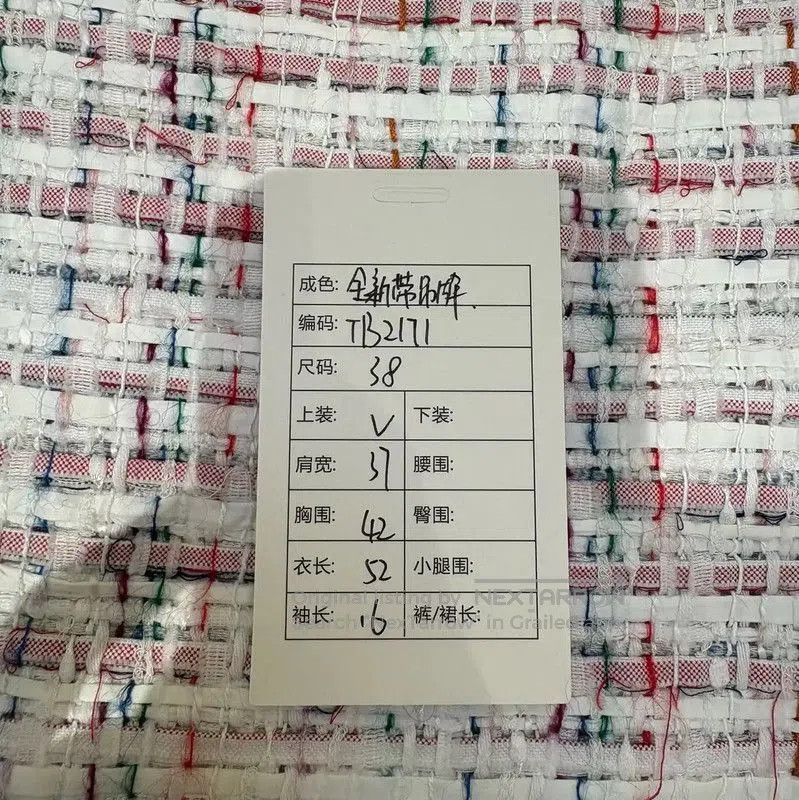 成色: 全新带吊牌.
编码: TB2171
尺码: 38
上装: V 下装:
肩宽: 37 腰围:
胸围: 42 臀围:
衣长: 52 小腿围:
Original listing by NEXTARROW
袖长: 16 裤/裙长:
Search "Nextarrow" in Grailed